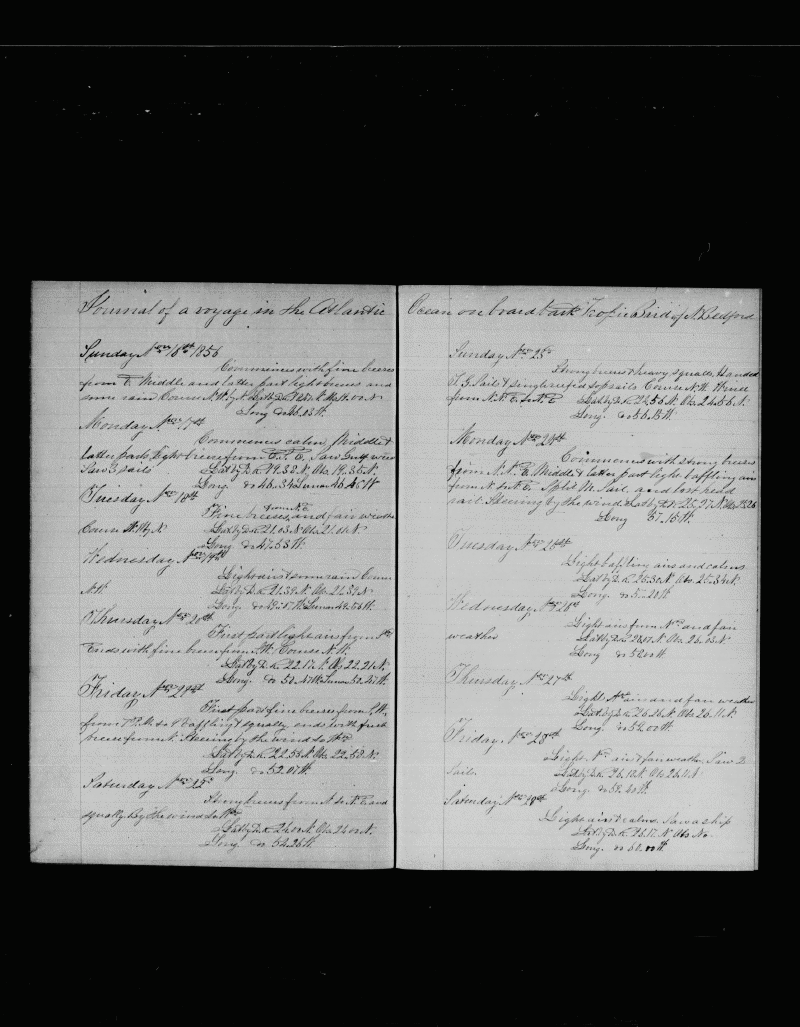 Journal of a voyage in the Atlantic
Sunday Nov 16th 1856
Commences with fine breeses
from E. Middle and latter part light breeses and
some rain Course N.W. by N.
Long Do 46.03 W.
Monday Nov 17th
Commences calm, Middle &
latter part light breese from Saw Gulf weed
Saw 3 sails Lat by D.R. 19.38 N. Obs. 19.35 N.
Long. Do 46.34 Lunar
Tuesday Nov 18th
from N.E.
Fine breeses and fair weather
Course W. by N Lat by D.R. 21.03 N. Obs. 21.11 N.
Long. Do 47.53 W.
Wednesday Nov 19th
Light airs & some rain Course
N.W. Lat by D.R. 21.39 N. Obs. 21.39 N.
Long. Do 49. Lunar 49.56 W.
Thursday Nov 20th
First part light airs from
Ends with fine breese from Course N.W.
Lat by D.R. 22.17 N. Obs 22.21 N.
Long. Do 50.47 W. Lunar 50.47 W.
Friday Nov 21st
First part fine breeses from
from baffling & squally ends with fresh
breese from N. Steering by the wind to
Lat by D.R. 22.56 N. Obs. 22.50 N.
Long. Do 52.07 W.
Saturday Nov 22d
Strong breeses from N to N.E. and
squally. By the wind to
Lat by D.R. 24.00 N. Obs. 24.00 N.
Long. Do 54.26 W.
Ocean on board bark Tropic Bird of N. Bedford
Sunday Nov 23d
Strong breeses & heavy squalls. Handed
T.G. Sails & single reefed topsails Course N.W. Wind
from N.N.E. to N.E. Lat by D.R. 24.56 N. Obs. 24.56 N.
Long. Do 56.13 W.
Monday Nov 24th
Commences with strong breeses
from N.N.E. Middle & latter part light baffling airs
from N. to N.E. Split M. Sail, and bent
sail. Steering by the wind. Lat by D.R. 25.27 N.
Long 57.16 W.
Tuesday Nov 25th
Light baffling airs and calms
Lat by D.R. 25.30 N. Obs. 25.34 N.
Long. Do
Wednesday Nov 26th
Light airs from and fair
weather Lat by D.R. Obs. 26.03 N.
Long Do
Thursday Nov 27th
Lights airs and fair weather
Lat by D.R. 26.26 N. Obs. 26.11 N.
Long. Do 59.00 W.
Friday. Nov 28th
Light airs & fair weather. Saw 2
sails. Lat by D.R. 26.10 N. Obs. 26.11 N.
Long. Do 59.40 W.
Saturday Nov 29th
Light airs & calms. Saw a ship
Lat by D.R. 26.17 N Obs No.
Long. Do 60.00 W.